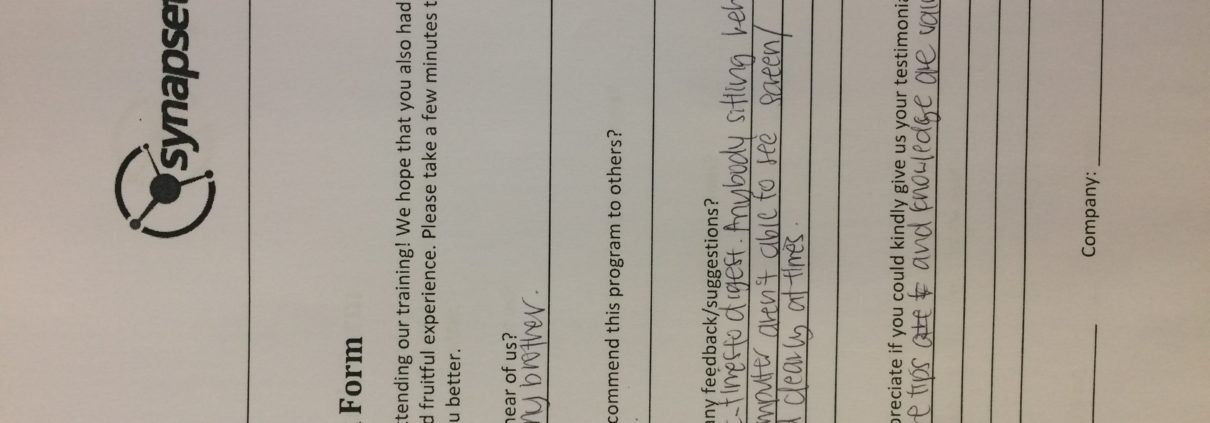 synapse
Form
tending our training! We hope that you also had
d fruitful experience. Please take a few minutes t
u better.
hear of us?
my brother.
commend this program to others?
any feedback/suggestions?
-times to digest. Anybody sitting beh
mputer aren't able to see screen/
clearly at times.
preciate if you could kindly give us your testimonia
e tips and knowledge are valu
Company: